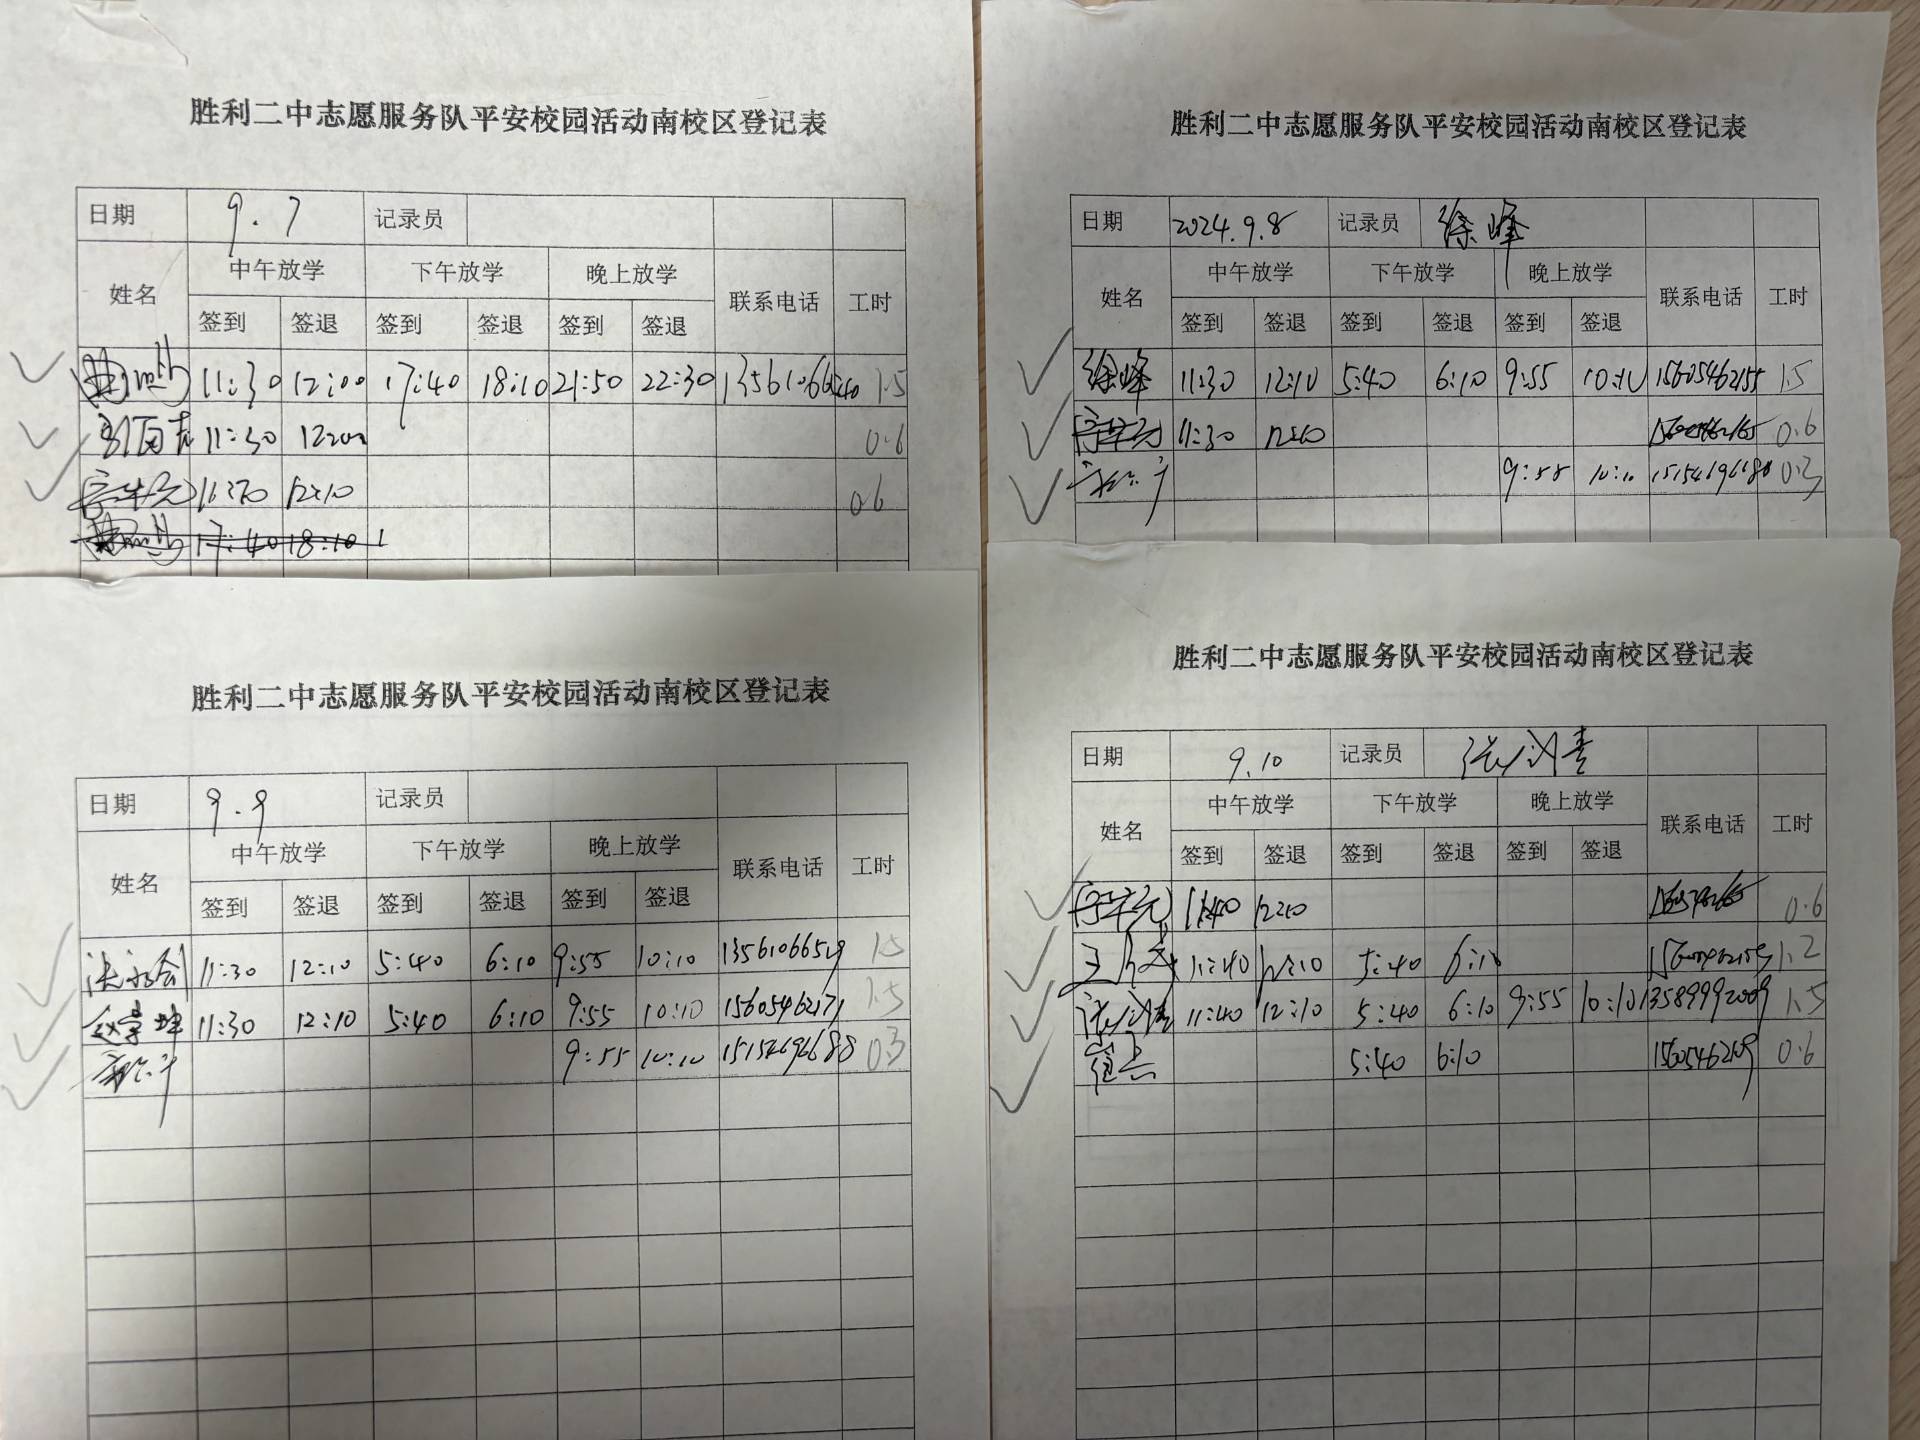 胜利二中志愿服务队平安校园活动南校区登记表
日期 9.7 记录员
姓名 中午放学 下午放学 晚上放学 联系电话 工时
签到 签退 签到 签退 签到 签退
11:30 12:00 17:40 18:10 21:50 22:30 1.5
11:30 0.6
12:10 0.6
17:40 18:10
胜利二中志愿服务队平安校园活动南校区登记表
日期 2024.9.8 记录员 徐峰
姓名 中午放学 下午放学 晚上放学 联系电话 工时
签到 签退 签到 签退 签到 签退
徐峰 11:30 12:10 5:40 6:10 9:55 10:10 15605462155 1.5
11:30 12:10 0.6
9:58 10:10 15154696688 0.3
胜利二中志愿服务队平安校园活动南校区登记表
日期 9.9 记录员
姓名 中午放学 下午放学 晚上放学 联系电话 工时
签到 签退 签到 签退 签到 签退
11:30 12:10 5:40 6:10 9:55 10:10 1.5
11:30 12:10 5:40 6:10 9:55 10:10 15605462171 1.5
9:55 10:10 15154696688 0.3
胜利二中志愿服务队平安校园活动南校区登记表
日期 9.10 记录员
姓名 中午放学 下午放学 晚上放学 联系电话 工时
签到 签退 签到 签退 签到 签退
11:40 12:10 0.6
11:40 12:10 5:40 6:10 1.2
11:40 12:10 5:40 6:10 9:55 10:10 13589992009 1.5
5:40 6:10 15605462109 0.6